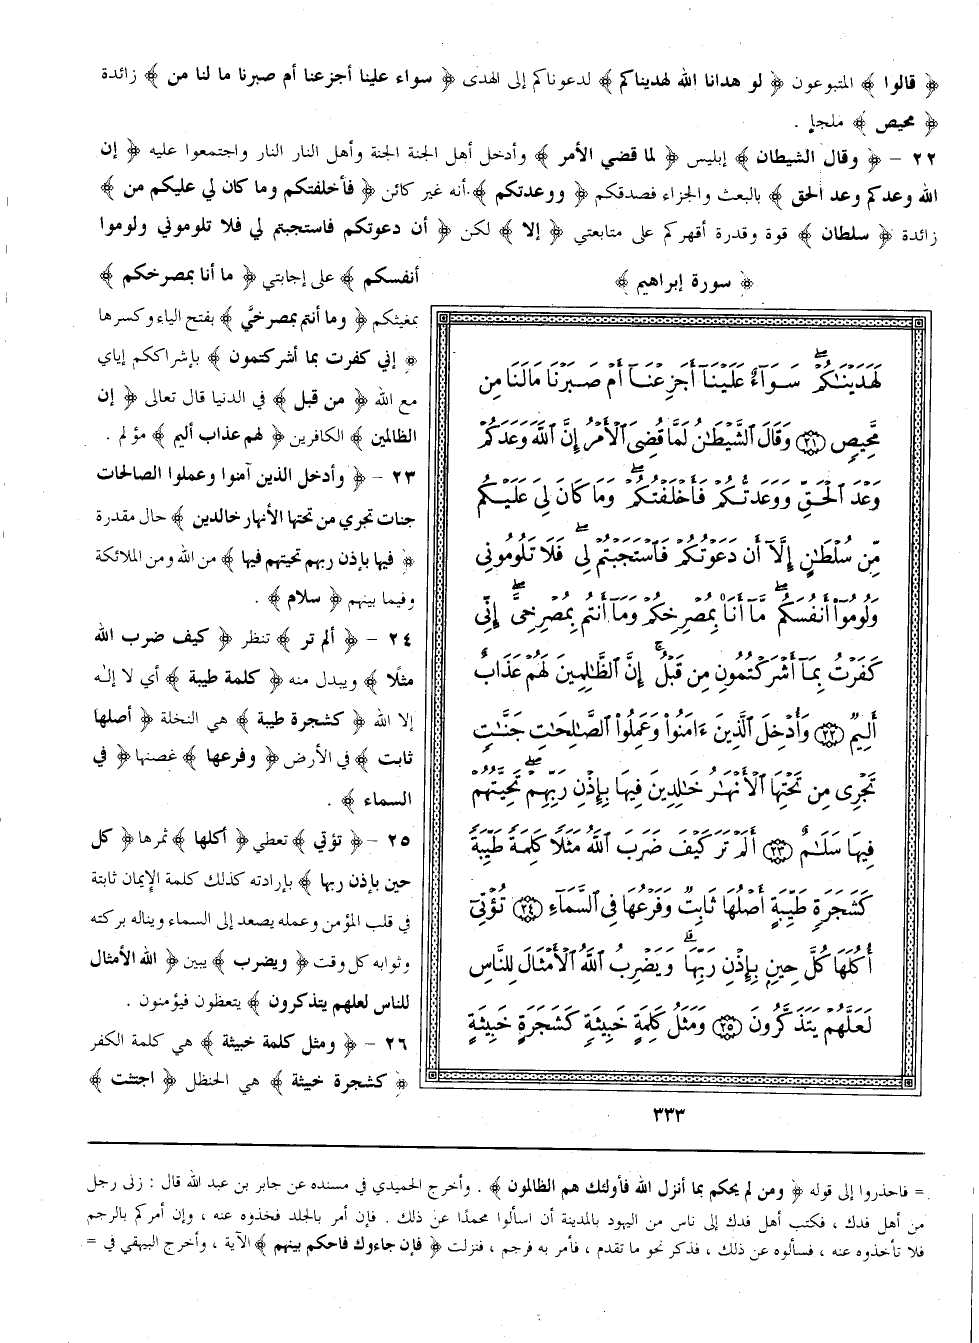 ﴿ قالوا ﴾ المتبوعون ﴿ لو هدانا الله لهديناكم ﴾ لدعوناكم إلى الهدى ﴿ سواء علينا أجزعنا أم صبرنا ما لنا من ﴾ زائدة
﴿ محيص ﴾ ملجإ .
٢٢ - ﴿ وقال الشيطان ﴾ إبليس ﴿ لما قضي الأمر ﴾ وأدخل أهل الجنة الجنة وأهل النار النار واجتمعوا عليه ﴿ إن
الله وعدكم وعد الحق ﴾ بالبعث والجزاء فصدقكم ﴿ ووعدتكم ﴾ أنه غير كائن ﴿ فأخلفتكم وما كان لي عليكم من ﴾
زائدة ﴿ سلطان ﴾ قوة وقدرة أقهركم على متابعتي ﴿ إلا ﴾ لكن ﴿ أن دعوتكم فاستجبتم لي فلا تلوموني ولوموا
أنفسكم ﴾ على إجابتي ﴿ ما أنا بمصرخكم ﴾
بمغيثكم ﴿ وما أنتم بمصرخيَّ ﴾ بفتح الياء وكسرها
﴿ إني كفرت بما أشركتمون ﴾ بإشراككم إياي
مع الله ﴿ من قبل ﴾ في الدنيا قال تعالى ﴿ إن
الظالمين ﴾ الكافرين ﴿ لهم عذاب أليم ﴾ مؤلم .
٢٣ - ﴿ وأدخل الذين آمنوا وعملوا الصالحات
جنات تجري من تحتها الأنهار خالدين ﴾ حال مقدرة
﴿ فيها بإذن ربهم تحيتهم فيها ﴾ من الله ومن الملائكة
وفيما بينهم ﴿ سلام ﴾ .
٢٤ - ﴿ ألم تر ﴾ تنظر ﴿ كيف ضرب الله
مثلًا ﴾ ويبدل منه ﴿ كلمة طيبة ﴾ أي لا إلٰه
إلا الله ﴿ كشجرة طيبة ﴾ هي النخلة ﴿ أصلها
ثابت ﴾ في الأرض ﴿ وفرعها ﴾ غصنها ﴿ في
السماء ﴾ .
٢٥ - ﴿ تؤتي ﴾ تعطي ﴿ أكلها ﴾ ثمرها ﴿ كل
حين بإذن ربها ﴾ بإرادته كذلك كلمة الإيمان ثابتة
في قلب المؤمن وعمله يصعد إلى السماء ويناله بركته
وثوابه كل وقت ﴿ ويضرب ﴾ يبين ﴿ الله الأمثال
للناس لعلهم يتذكرون ﴾ يتعظون فيؤمنون .
٢٦ - ﴿ ومثل كلمة خبيثة ﴾ هي كلمة الكفر
﴿ كشجرة خبيثة ﴾ هي الحنظل ﴿ اجتثت ﴾
﴿ سورة إبراهيم ﴾
لَهَدَيْنَٰكُمْ ۖ سَوَآءٌ عَلَيْنَآ أَجَزِعْنَآ أَمْ صَبَرْنَا مَا لَنَا مِن
مَّحِيصٍ ٢١ وَقَالَ ٱلشَّيْطَٰنُ لَمَّا قُضِىَ ٱلْأَمْرُ إِنَّ ٱللَّهَ وَعَدَكُمْ
وَعْدَ ٱلْحَقِّ وَوَعَدتُّكُمْ فَأَخْلَفْتُكُمْ ۖ وَمَا كَانَ لِىَ عَلَيْكُم
مِّن سُلْطَٰنٍ إِلَّآ أَن دَعَوْتُكُمْ فَٱسْتَجَبْتُمْ لِى ۖ فَلَا تَلُومُونِى
وَلُومُوٓا۟ أَنفُسَكُم ۖ مَّآ أَنَا۠ بِمُصْرِخِكُمْ وَمَآ أَنتُم بِمُصْرِخِىَّ ۖ إِنِّى
كَفَرْتُ بِمَآ أَشْرَكْتُمُونِ مِن قَبْلُ ۗ إِنَّ ٱلظَّٰلِمِينَ لَهُمْ عَذَابٌ
أَلِيمٌ ٢٢ وَأُدْخِلَ ٱلَّذِينَ ءَامَنُوا۟ وَعَمِلُوا۟ ٱلصَّٰلِحَٰتِ جَنَّٰتٍ
تَجْرِى مِن تَحْتِهَا ٱلْأَنْهَٰرُ خَٰلِدِينَ فِيهَا بِإِذْنِ رَبِّهِمْ ۖ تَحِيَّتُهُمْ
فِيهَا سَلَٰمٌ ٢٣ أَلَمْ تَرَ كَيْفَ ضَرَبَ ٱللَّهُ مَثَلًا كَلِمَةً طَيِّبَةً
كَشَجَرَةٍ طَيِّبَةٍ أَصْلُهَا ثَابِتٌ وَفَرْعُهَا فِى ٱلسَّمَآءِ ٢٤ تُؤْتِىٓ
أُكُلَهَا كُلَّ حِينٍۭ بِإِذْنِ رَبِّهَا ۗ وَيَضْرِبُ ٱللَّهُ ٱلْأَمْثَالَ لِلنَّاسِ
لَعَلَّهُمْ يَتَذَكَّرُونَ ٢٥ وَمَثَلُ كَلِمَةٍ خَبِيثَةٍ كَشَجَرَةٍ خَبِيثَةٍ
٣٣٣
= فاحذروا إلى قوله ﴿ ومن لم يحكم بما أنزل الله فأولئك هم الظالمون ﴾ . وأخرج الحميدي في مسنده عن جابر بن عبد الله قال : زنى رجل
من أهل فدك ، فكتب أهل فدك إلى ناس من اليهود بالمدينة أن اسألوا محمدًا عن ذلك . فإن أمر بالجلد فخذوه عنه ، وإن أمركم بالرجم
فلا تأخذوه عنه ، فسألوه عن ذلك ، فذكر نحو ما تقدم ، فأمر به فرجم ، فنزلت ﴿ فإن جاءوك فاحكم بينهم ﴾ الآية ، وأخرج البيهقي في =